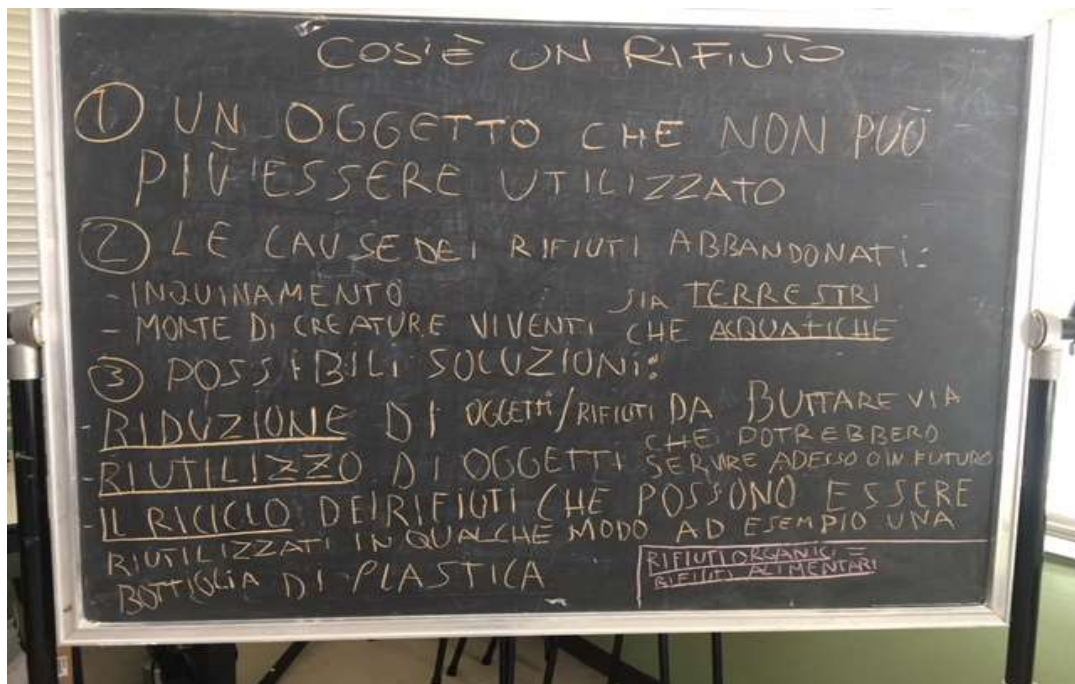 COS'È UN RIFIUTO
① UN OGGETTO CHE NON PUÒ
PIÙ ESSERE UTILIZZATO
② LE CAUSE DEI RIFIUTI ABBANDONATI:
- INQUINAMENTO
- MORTE DI CREATURE VIVENTI SIA TERRESTRI
CHE ACQUATICHE
③ POSSIBILI SOLUZIONI:
- RIDUZIONE DI OGGETTI/RIFIUTI DA BUTTARE VIA
- RIUTILIZZO DI OGGETTI CHE POTREBBERO
SERVIRE ADESSO O IN FUTURO
- IL RICICLO DEI RIFIUTI CHE POSSONO ESSERE
RIUTILIZZATI IN QUALCHE MODO AD ESEMPIO UNA
BOTTIGLIA DI PLASTICA
RIFIUTI ORGANICI =
RIFIUTI ALIMENTARI